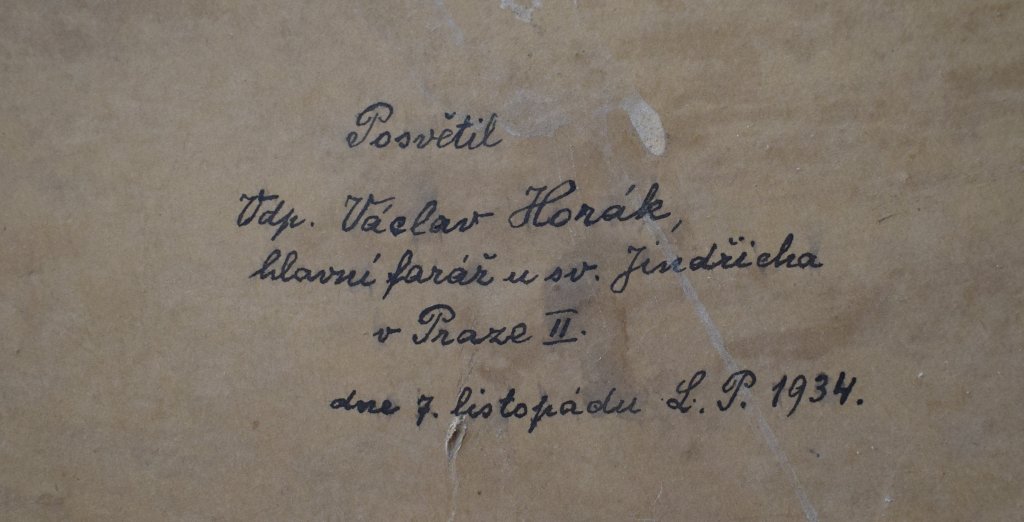 Posvětil
Vdp. Václav Horák,
hlavní farář u sv. Jindřicha
v Praze II.
dne 7. listopádu L. P. 1934.